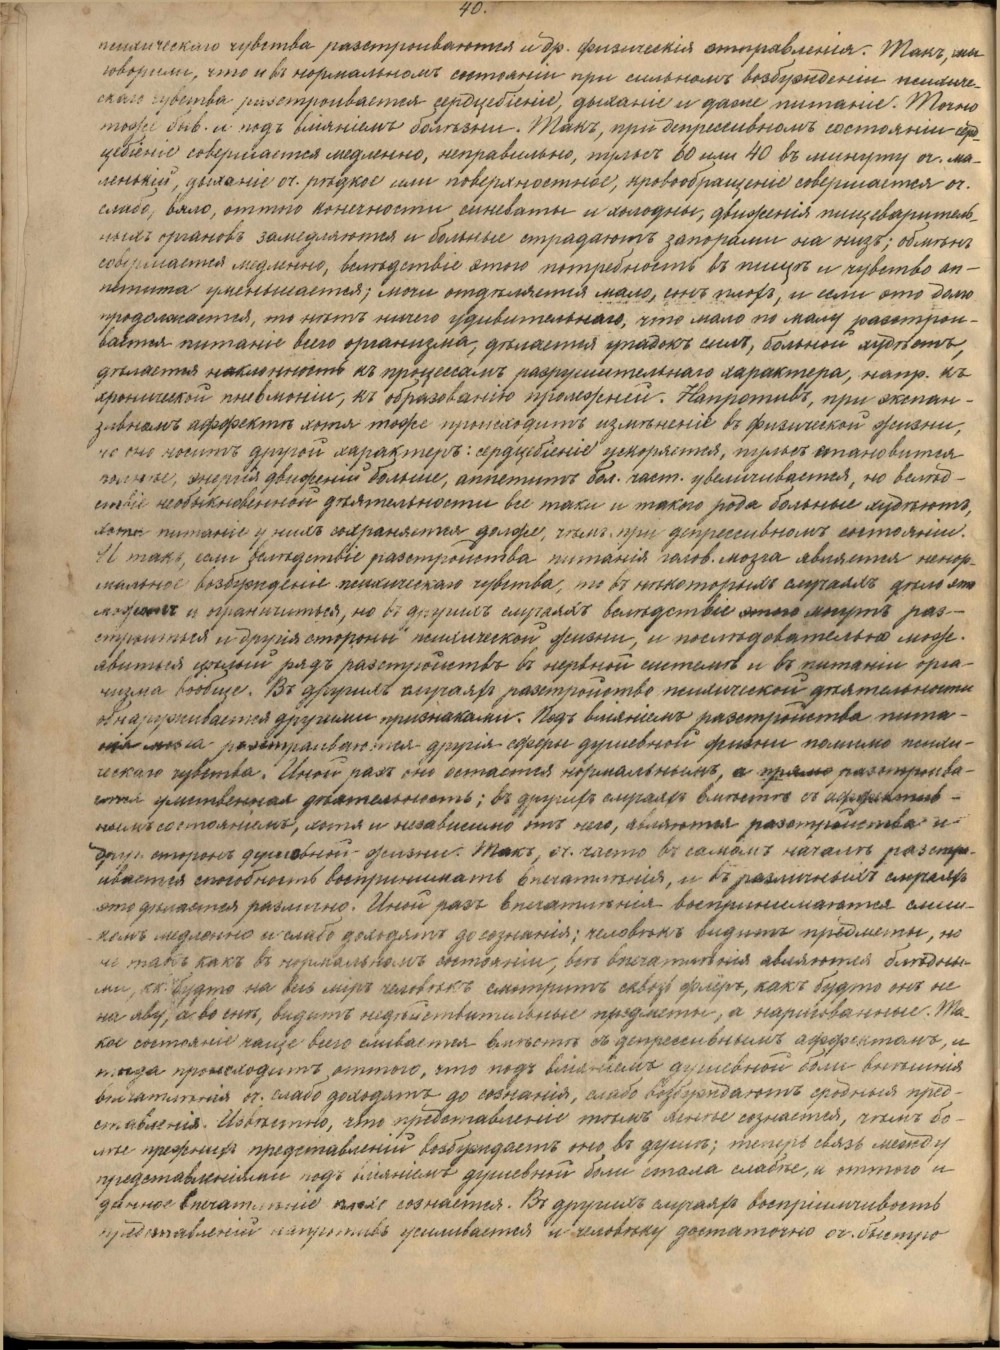 40.
психическаго чувства разстроиваются и др. физическія отправленія. Такъ, мы
говорили, что и въ нормальномъ состояніи при сильномъ возбужденіи психиче-
скаго чувства разстроивается сердцебіеніе, дыханіе и даже питаніе. Точно
тоже быв. и подъ вліяніемъ болѣзни. Такъ, при депрессивномъ состояніи серд-
цебіеніе совершается медленно, неправильно, пульсъ 60 или 40 въ минуту оч. ма-
ленькій, дыханіе оч. рѣдкое или поверхностное, кровообращеніе совершается оч.
слабо, вяло, оттого конечности синеваты и холодны, движенія пищеваритель-
ныхъ органовъ замедляются и больные страдаютъ запорами на низъ; обмѣнъ
совершается медленно, вслѣдствіе этого потребность въ пищѣ и чувство ап-
петита уменьшается; мочи отдѣляется мало, сонъ плохъ, и если это долго
продолжается, то нѣтъ ничего удивительнаго, что мало по малу разстрои-
вается питаніе всего организма, дѣлается упадокъ силъ, больной худѣетъ,
дѣлается наклонность къ процессамъ разрушительнаго характера, напр. къ
хронической пневмоніи, къ образованію пролежней. Напротивъ, при экспан-
зивномъ аффектѣ хотя тоже происходитъ измѣненіе въ физической жизни,
но оно носитъ другой характеръ: сердцебіеніе ускоряется, пульсъ становится
полнѣе, энергія движеній больше, аппетитъ бол. част. увеличивается, но вслѣд-
ствіе необыкновенной дѣятельности все таки и такого рода больные худѣютъ,
хотя питаніе у нихъ сохраняется долѣе, чѣмъ при депрессивномъ состояніи.
И такъ, если вслѣдствіе разстройства питанія голов. мозга является ненор-
мальное возбужденіе психическаго чувства, то въ нѣкоторыхъ случаяхъ дѣло этимъ
можетъ и ограничиться, но въ другихъ случаяхъ вслѣдствіе этого могутъ раз-
строиться и другія стороны психической жизни, и послѣдовательно мож.
явиться цѣлый рядъ разстройствъ въ нервной системѣ и въ питаніи орга-
низма вообще. Въ другихъ случаяхъ разстройство психической дѣятельности
обнаруживается другими признаками. Подъ вліяніемъ разстройства пита-
нія мозга разстраиваются другія сферы душевной жизни помимо психи-
ческаго чувства. Иной разъ оно остается нормальнымъ, а прямо разстроива-
ется умственная дѣятельность; въ другихъ случаяхъ вмѣстѣ съ аффектив-
нымъ состояніемъ, хотя и независимо отъ него, являются разстройства и
друг. сторонъ душевной жизни. Такъ, оч. часто въ самомъ началѣ разстро-
ивается способность воспринимать впечатлѣнія, и въ различныхъ случаяхъ
это дѣлается различно. Иной разъ впечатлѣнія воспринимаются слиш-
комъ медленно и слабо доходятъ до сознанія; человѣкъ видитъ предметы, но
не такъ какъ въ нормальномъ состояніи, всѣ впечатлѣнія являются блѣдны-
ми, кк. будто на весь міръ человѣкъ смотритъ сквозь флеръ, какъ будто онъ не
на яву, а во снѣ, видитъ недѣйствительные предметы, а нарисованные. Та-
кое состояніе чаще всего сливается вмѣстѣ съ депрессивнымъ аффектомъ, и
тогда происходитъ оттого, что подъ вліяніемъ душевной боли внѣшнія
впечатлѣнія оч. слабо доходятъ до сознанія, слабо возбуждаютъ сродныя пред-
ставленія. Извѣстно, что представленіе тѣмъ яснѣе сознается, чѣмъ бо-
лѣе прежнихъ представленій возбуждаетъ оно въ душѣ; теперь связь между
представленіями подъ вліяніемъ душевной боли стала слабѣе, и оттого и
данное впечатлѣніе плохо сознается. Въ другихъ случаяхъ воспріимчивость
представленій напротивъ усиливается и человѣку достаточно оч. быстро